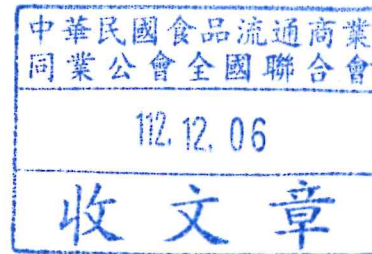 中華民國食品流通商業
同業公會全國聯合會
112.12.06
收文章